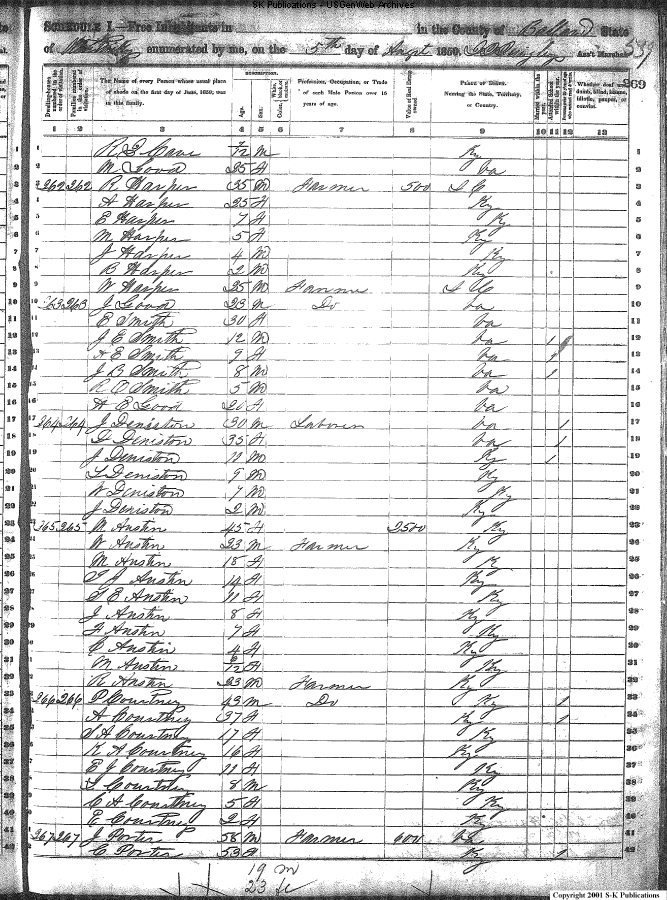 S-K Publications - USGenWeb Archives
SCHEDULE I.—Free Inhabitants in in the County of Ballard State
of enumerated by me, on the 5th day of August 1850. Ass't Marshal. 539
369
DESCRIPTION.
Dwelling-houses numbered in the order of visitation. Families numbered in the order of visitation. The Name of every Person whose usual place of abode on the first day of June, 1850, was in this family. Age. Sex. Color, White, black, or mulatto. Profession, Occupation, or Trade of each Male Person over 15 years of age. Value of Real Estate owned PLACE OF BIRTH. Naming the State, Territory, or Country. Married within the year. Attended School within the year. Whether deaf and dumb, blind, insane, idiotic, pauper, or convict.
1 2 3 4 5 6 7 8 9 10 11 12 13
1 /12 M Ky 1
2 M. Good 25 F Va 2
3 262 262 R Harper 35 M Farmer 500 S C 3
4 A Harper 25 F Ky 4
5 E Harper 7 F Ky 5
6 M Harper 5 F Ky 6
7 J Harper 4 M Ky 7
8 B Harper 2 M Ky 8
9 W Harper 25 M Farmer S C 9
10 263 263 J Good 23 M Do Va 10
11 E Smith 30 F Va 11
12 J E Smith 12 M Va 1 12
13 A E Smith 9 F Va 1 13
14 J B Smith 8 M Va 1 14
15 R O Smith 5 M Va 15
16 A E Good 20 F Va 16
17 264 264 J Deniston 30 M Laborer Va 1 17
18 Deniston 35 F Va 1 18
19 J Deniston 11 M Ky 1 19
20 Deniston 9 M Ky 20
21 W Deniston 7 M Ky 21
22 J Deniston 2 M Ky 22
23 265 265 M Austin 45 F 2500 Ky 23
24 W Austin 23 M Farmer Ky 24
25 M Austin 18 F K 25
26 J Austin 14 F Ky 26
27 E Austin 11 F Ky 27
28 J Austin 8 F Ky 28
29 Austin 7 F Ky 29
30 C Austin 4 F Ky 30
31 M Austin /12 F Ky 31
32 R Austin 23 M Farmer Ky 32
33 266 266 P Courtney 43 M Do Ky 1 33
34 A Courtney 37 F Ky 1 34
35 S A Courtney 17 F Ky 35
36 K A Courtney 16 F Ky 36
37 E J Courtney 11 F Ky 37
38 Courtney 8 M Ky 38
39 C A Courtney 5 F Ky 39
40 E Courtney 2 F Ky 40
41 267 267 J Porter 58 M Farmer 600 Va 41
42 C Porter 53 F Ky 1 42
19 m
23 fe
Copyright 2001 S-K Publications